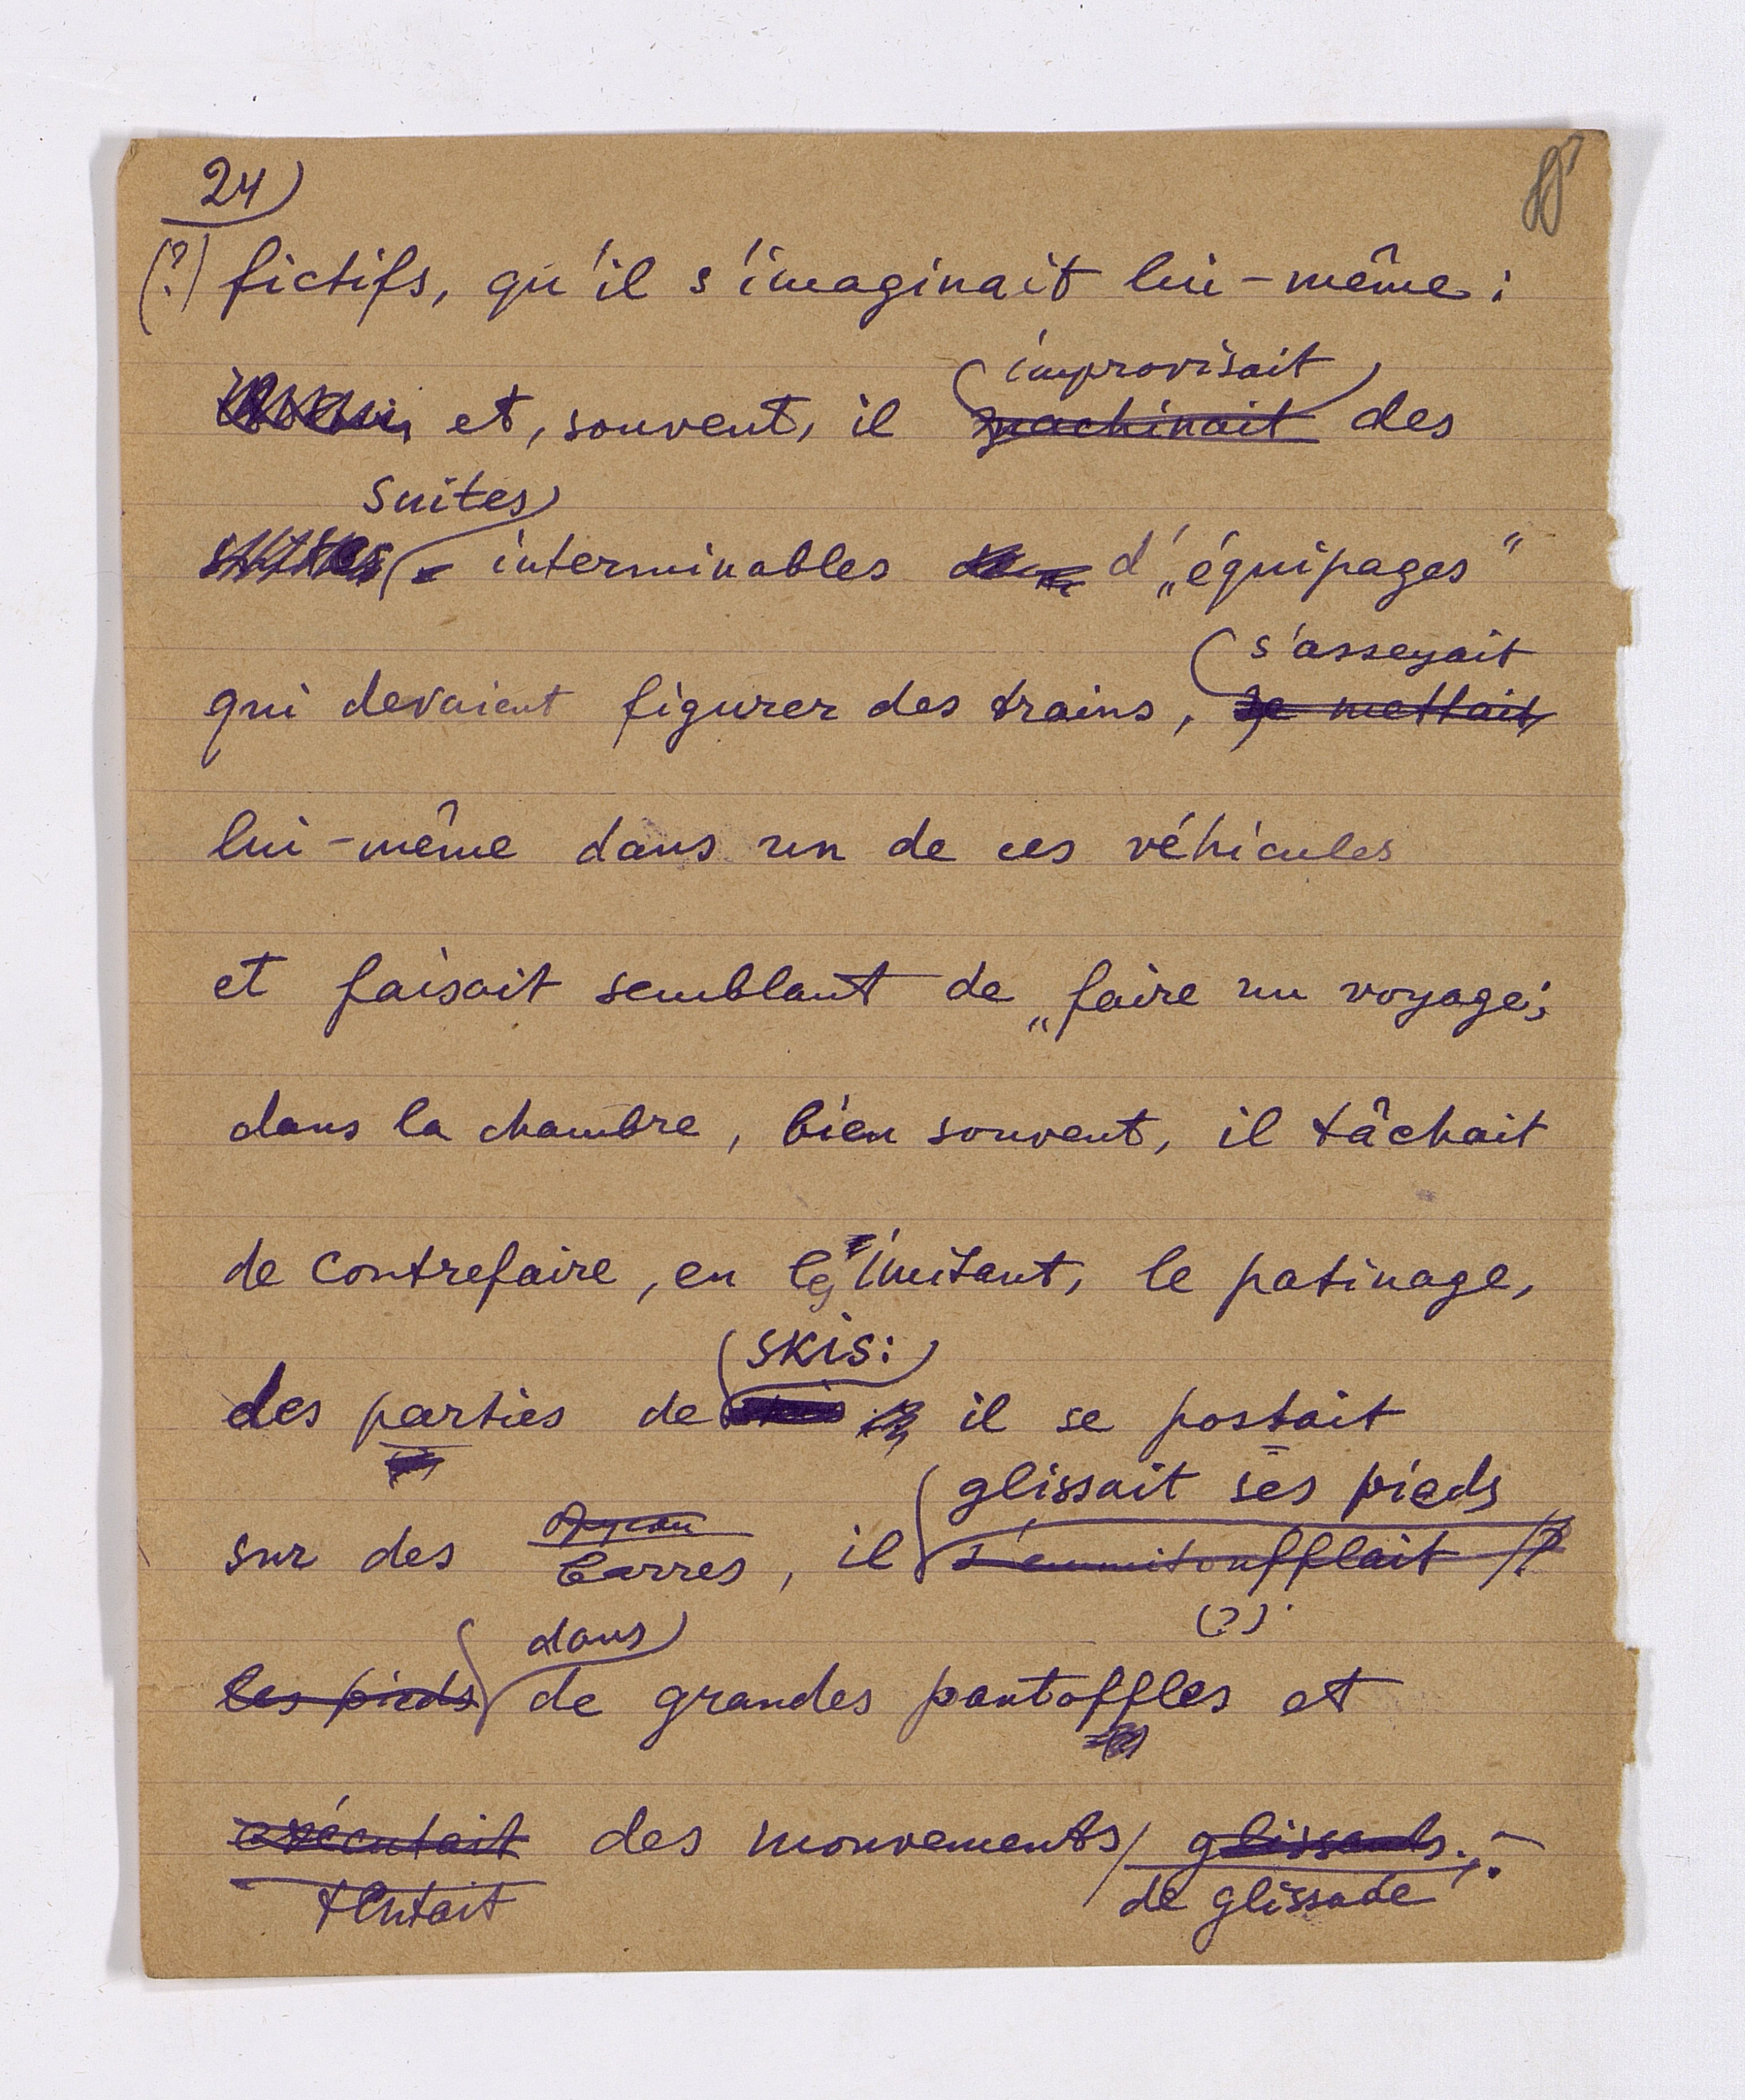 24)
(?) fictifs, qu'il s'imaginait lui-même :
improvisait
et, souvent, il machinait des
suites
interminables d'„équipages"
s'asseyait
qui devaient figurer des trains, se mettait
lui-même dans un de ces véhicules
et faisait semblant de „faire un voyage";
dans la chambre, bien souvent, il tâchait
de contrefaire, en les imitant, le patinage,
skis:
des parties de il se postait
glissait ses pieds
sur des barres, il s'emmitoufflait
(?)
dans
les pieds de grandes pantoffles et
exécutait des mouvements glissants.;
tentait de glissade